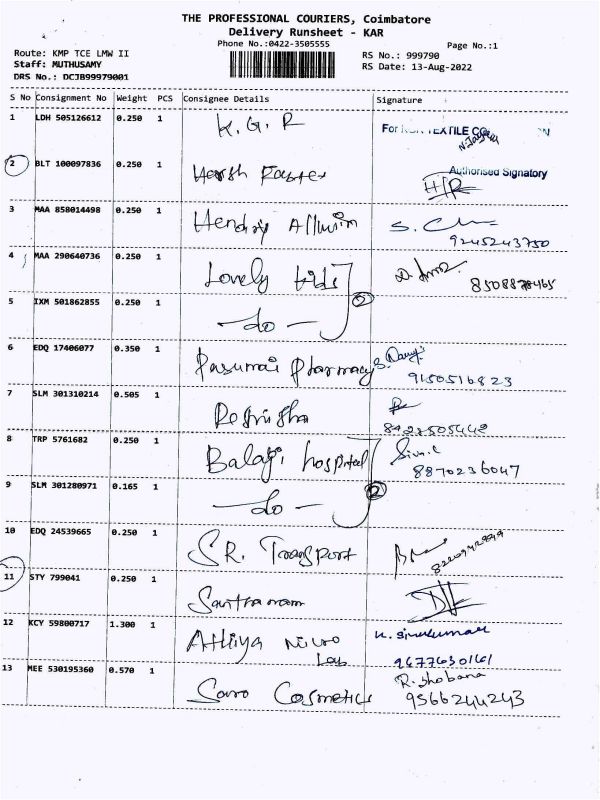 THE PROFESSIONAL COURIERS, Coimbatore
Delivery Runsheet - KAR
Phone No.:0422-3505555
Page No.:1
Route: KMP TCE LMW II
Staff: MUTHUSAMY
DRS No.: DCJB99979001
RS No.: 999790
RS Date: 13-Aug-2022
S No Consignment No Weight PCS Consignee Details Signature
1 LDH 505126612 0.250 1 K.G.R
For TEXTILE
2 BLT 100097836 0.250 1 Harsh
Authorised Signatory
3 MAA 858014498 0.250 1 Hendry
9245243750
4 MAA 290640736 0.250 1 Lovely kids
2
5 IXM 501862855 0.250 1 - do -
6 EDQ 17406077 0.350 1 Pasumai Pharmacy
9150516823
7 SLM 301310214 0.505 1
8427505448
8 TRP 5761682 0.250 1 Balaji hospital
8870236047
2
9 SLM 301280971 0.165 1 - do -
10 EDQ 24539665 0.250 1 S.R. Transport
11 STY 799041 0.250 1
12 KCY 59800717 1.300 1 Athiya Micro K. Sivakumar
Lab 9677630161
13 MEE 530195360 0.570 1 Saro Cosmetics R. Shobana
9566244243